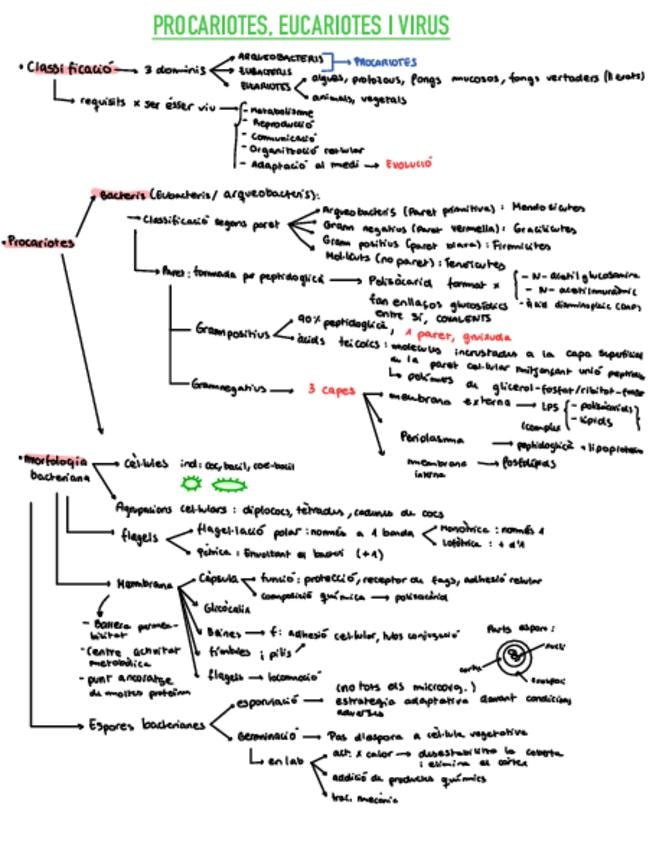 PROCARIOTES, EUCARIOTES I VIRUS
• Classificació → 3 dominis
ARQUEOBACTERIS
EUBACTERIS
→ PROCARIOTES
EUKARIOTES
algues, protozous, fongs mucosos, fongs vertaders (llevats)
animals, vegetals
requisits x ser ésser viu
- Metabolisme
- Reproducció
- Comunicació
- Organització cel·lular
- Adaptació al medi → EVOLUCIÓ
• Procariotes
Bacteris (Eubacteris/ arqueobacteris):
Classificació segons paret
Arqueobacteris (Paret primitiva): Mendosicutes
Gram negatius (Paret vermella): Gracilicutes
Gram positius (paret blava): Firmicutes
Mol·licuts (no paret): Tenericutes
Paret: formada per peptidoglicà → Polisàcarid format x
- N-acetilglucosamina
- N-acetilmuràmic
- Àcid diaminopimelic
fan enllaços glucosídics
entre sí, COVALENTS
Grampositius
90% peptidoglicà, 1 paret, gruixuda
àcids teicoics: molècules incrustades a la capa superficial
de la paret cel·lular mitjançant unió
↳ polímers de glicerol-fosfat/ribitol-fosfat
Gramnegatius → 3 capes
membrana externa → LPS
- polisacàrids
- lípids
(complex
Periplasma → peptidoglicà + lipoproteïna
membrana → fosfolípids
interna
• morfologia
bacteriana
cèl·lules ind: coc, bacil, coc-bacil
Agrupacions cel·lulars: diplococs, tètrades, cadenes de cocs
flagels
flagel·lació polar: només a 1 banda
Monòtrica: només 1
Lofòtrica: + d'1
Pètrica: Envoltant el bacteri (+1)
Membrana
- Barrera permea-
bilitat
- Centre activitat
metabòlica
- punt ancoratge
de moltes proteïnes
Càpsula
funció: protecció, receptor de fags, adhesió cel·lular
composició química → polisacàrid
Glicocàlix
Beines → f: adhesió cel·lular, tubs conjugació
fímbries i pilis
flagels → locomoció
Parts espora:
nucli
cortex
Espores bacterianes
esporulació → (no tots els microorg.)
estratègia adaptativa davant condicions
adverses
Germinació → Pas d'espora a cèl·lula vegetativa
↳ en lab
act. x calor → desestabilitza la coberta
i elimina el còrtex
addició de productes químics
trac. mecànic